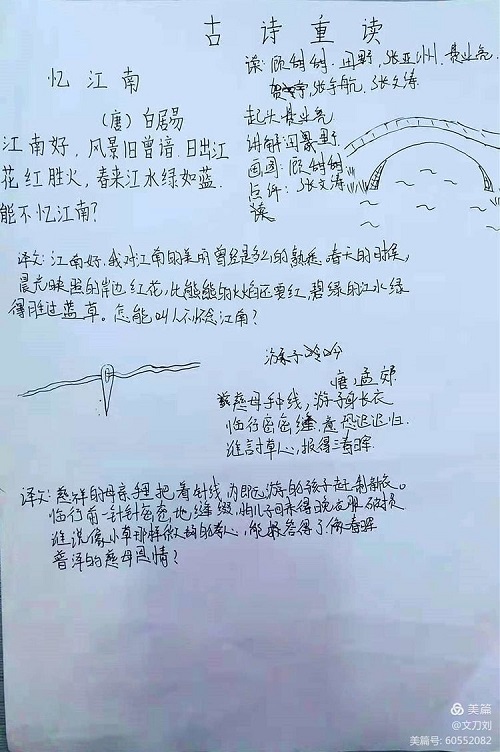 古诗重读
读:顾甜甜.田野.张亚州.聂业亮
张宇航.张文涛
忆江南
(唐)白居易
江南好,风景旧曾谙.日出江
花红胜火,春来江水绿如蓝.
能不忆江南?
起头聂业亮
讲解田野
画图:顾甜甜
点评:张文涛
读
译文:江南好.我对江南的美丽曾经是多么的熟悉.春天的时候,
晨光映照的岸边红花,比熊熊的火焰还要红,碧绿的江水绿
得胜过蓝草。怎能叫人不怀念江南?
游子吟
唐 孟郊
慈母手中线,游子身上衣
临行密密缝.意恐迟迟归.
谁言寸草心,报得三春晖
译文:慈祥的母亲手里把着针线,为即远游的孩子赶制新衣。
临行前一针针密密地缝缀,怕儿子回来得晚衣服破损
谁说像小草那样微弱的孝心,能报答得了像春晖
普泽的慈母恩情?
美篇
@文刀刘
美篇号:60552082